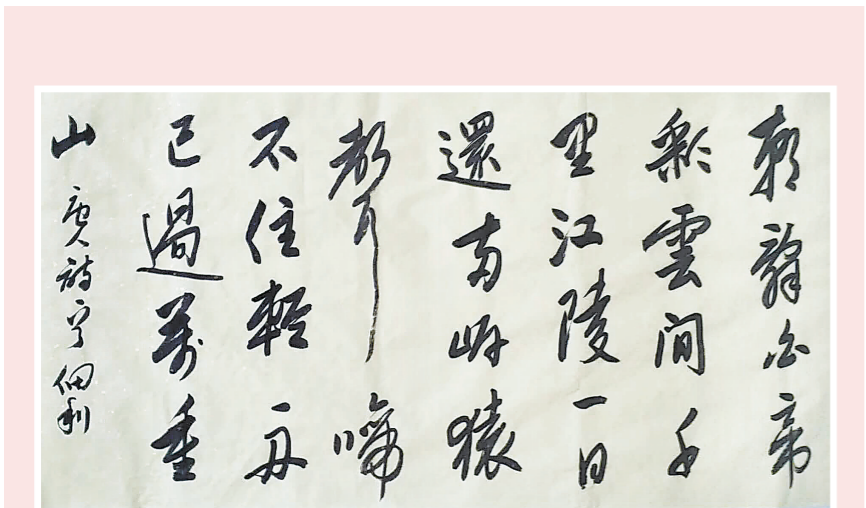 朝辭白帝
彩雲間千
里江陵一日
還兩岸猿
聲啼
不住輕舟
已過萬重
山 唐人詩 佃利